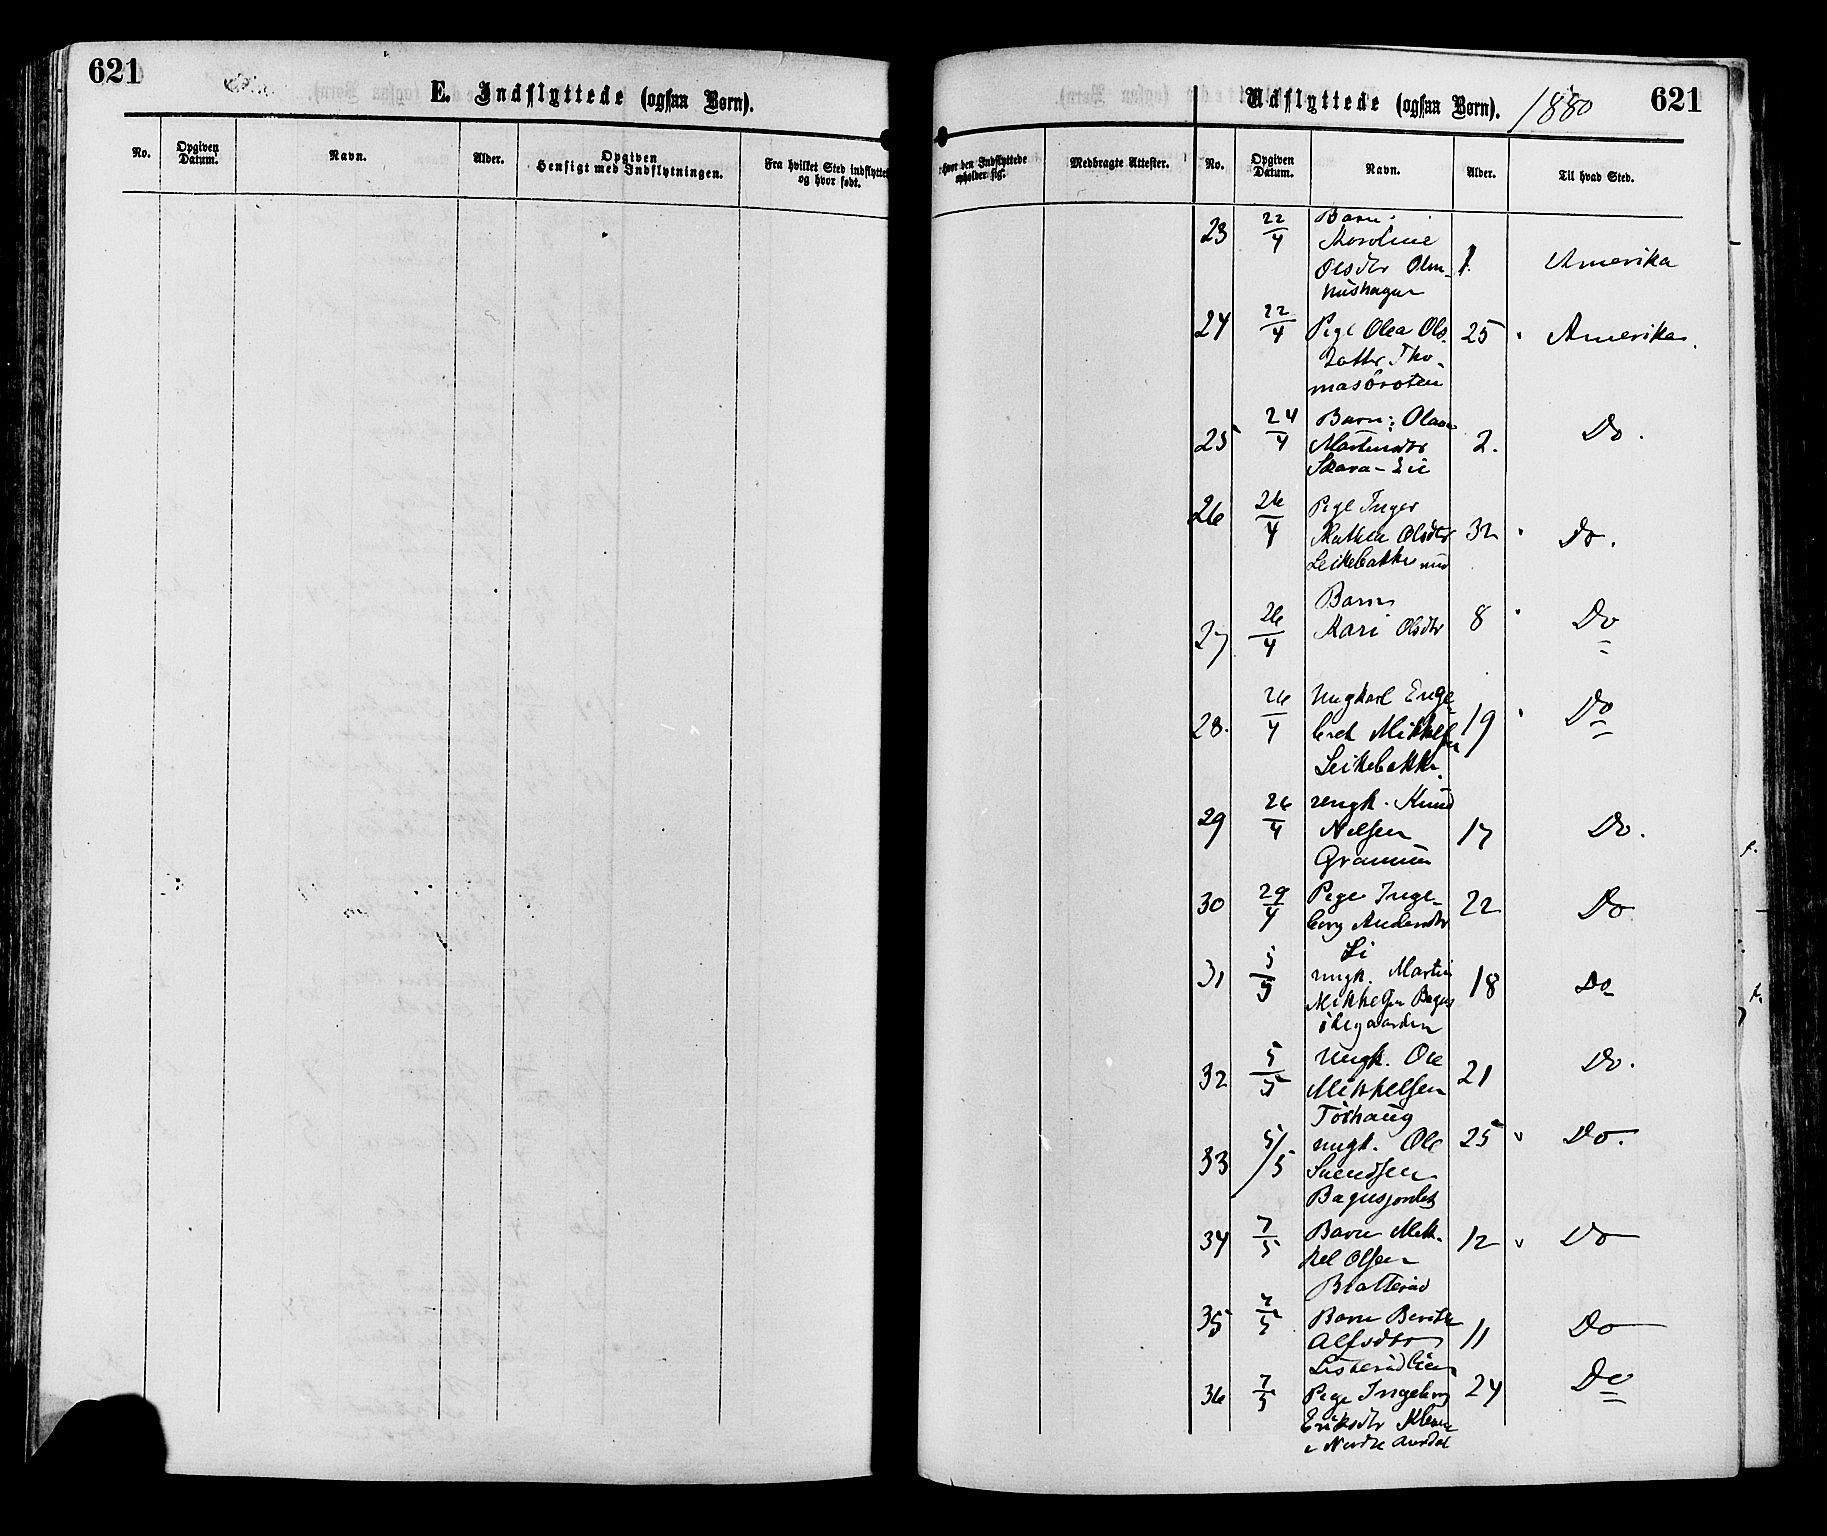 621
E. Indflyttede (ogsaa Børn).
No.
Opgiven Datum.
Navn.
Alder.
Opgiven Hensigt med Indflytningen.
Fra hvilket Sted indflyttet og hvor født.
Hvor den Indflyttede opholder sig.
Medbragte Attester.
Udflyttede (ogsaa Børn). 1880
621
No.
Opgiven Datum.
Navn.
Alder.
Til hvad Sted.
23 22/4 Barn:
Karoline
Olsdtr 1. Amerika
24 22/4 Pige Olea Ols
datter Tho-
masbroten 25 Amerika.
25 24/4 Barn:
Martinsdtr 2. Do.
26 26/4 Pige Inger
Mathea Olsdtr 32 Do.
Leikebakke
27 26/4 Barn
Kari Olsdtr 8 Do
28. 26/4 Ungkarl Enge-
bret Mikkelsen 19 Do
Leikebakke.
29 26/4 ungk. Knud
Nilsen 17 Do.
30 29/4 Pige Inge-
borg Andersdtr 22 Do
Li
31 5/5 ungk. Martin
Mikkelsen 18 Do
ødegaarden
32 5/5 Ungk. Ole
Mikkelsen 21 Do.
33 5/5 ungk. Ole 25 Do.
Svendsen
34 7/5 Barn Mik-
kel Olsen 12 Do
Bratterud
35 7/5 Barn Berthe
Alfsdtr 11 Do
36 7/5 Pige Ingeborg 24 Do
Eriksdtr
i Nordre Aurdal